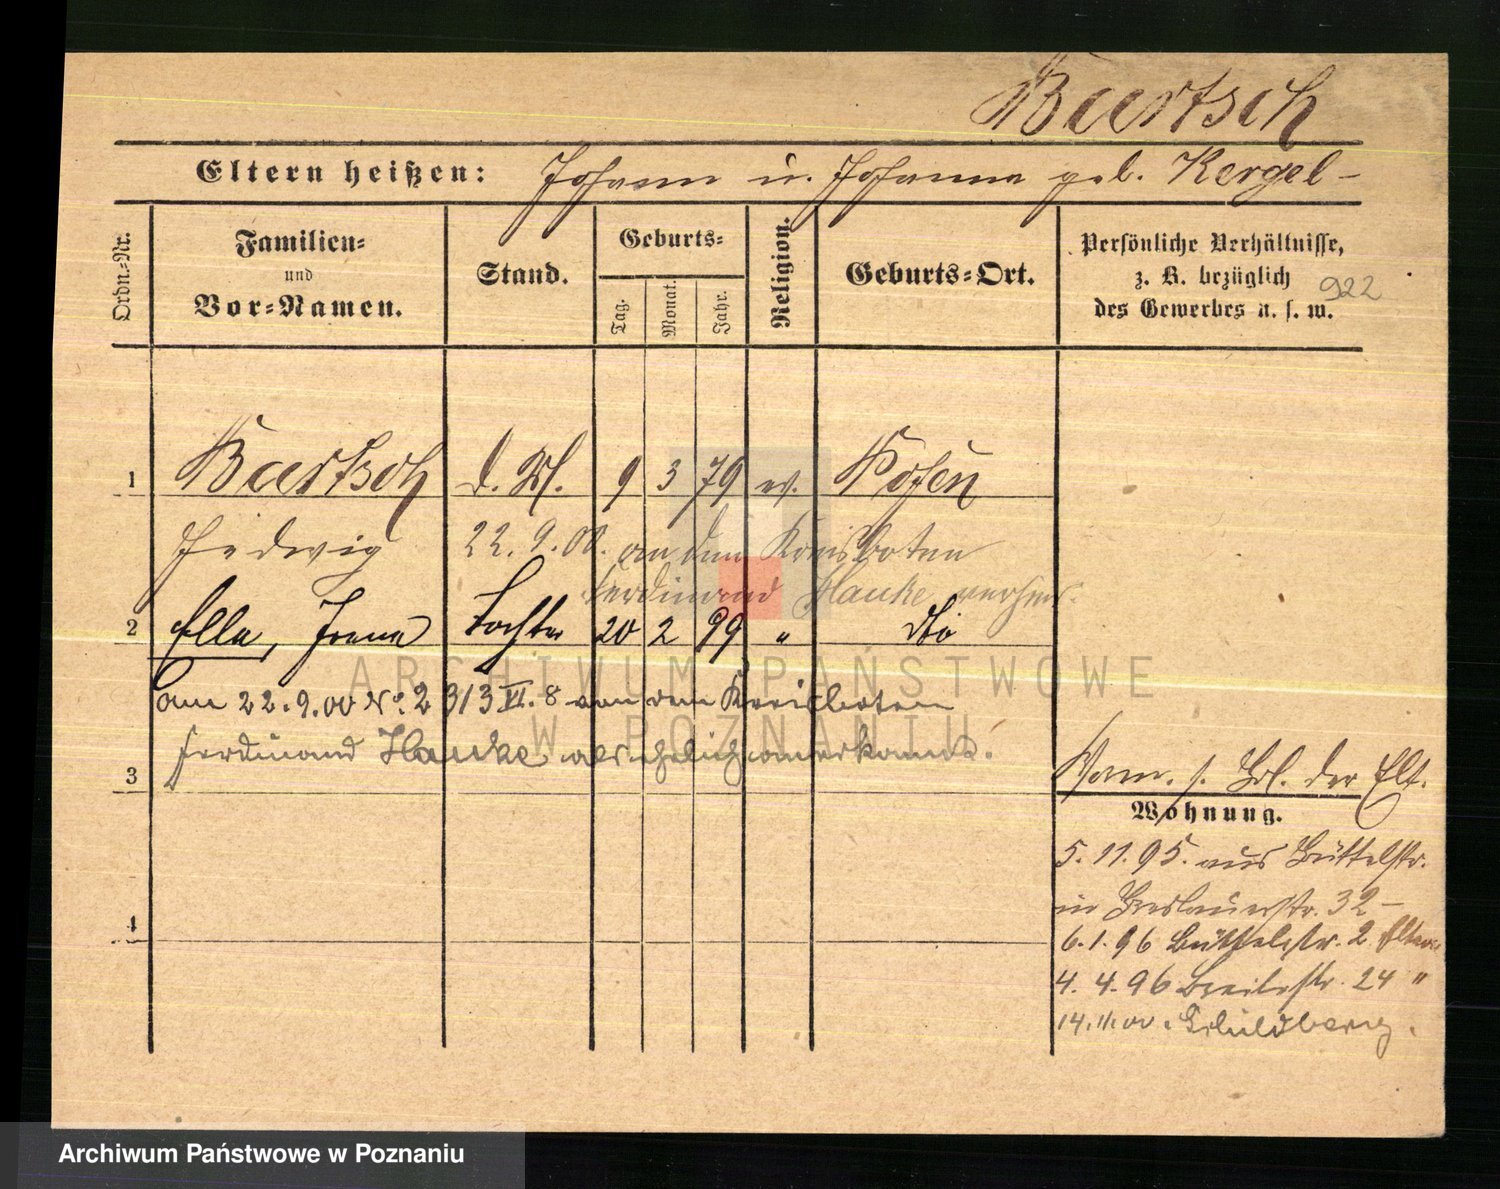 Bartsch
Eltern heißen: Johann u. Johanna geb. Kergel -
Ordn.-Nr.
Familien-
und
Vor-Namen.
Stand.
Geburts-
Tag.
Monat.
Jahr.
Religion.
Geburts-Ort.
Persönliche Verhältnisse,
z. B. bezüglich
des Gewerbes u. s. w.
922
1 Bartsch d. M. 9 3 79 ev. Posen
Hedwig 22. 9. 00. an den Kreisboten
Ferdinand Hauke verheir.
2 Ella, Irene Tochter 20 2 99 " dto
am 22. 9. 00 No. 2313 VI. 8 von dem Kreisboten
Ferdinand Hauke als ehelich anerkannt.
3
4
Vorm. s. Bl. der Elt.
Wohnung.
5. 11. 95. aus Büttelstr.
in Breslauerstr. 32 -
6. 1. 96 Büttelstr. 2 Eltern
4. 4. 96 Breitestr. 24 "
14. 11. 00. Schildberg.
ARCHIWUM PAŃSTWOWE
W POZNANIU
Archiwum Państwowe w Poznaniu